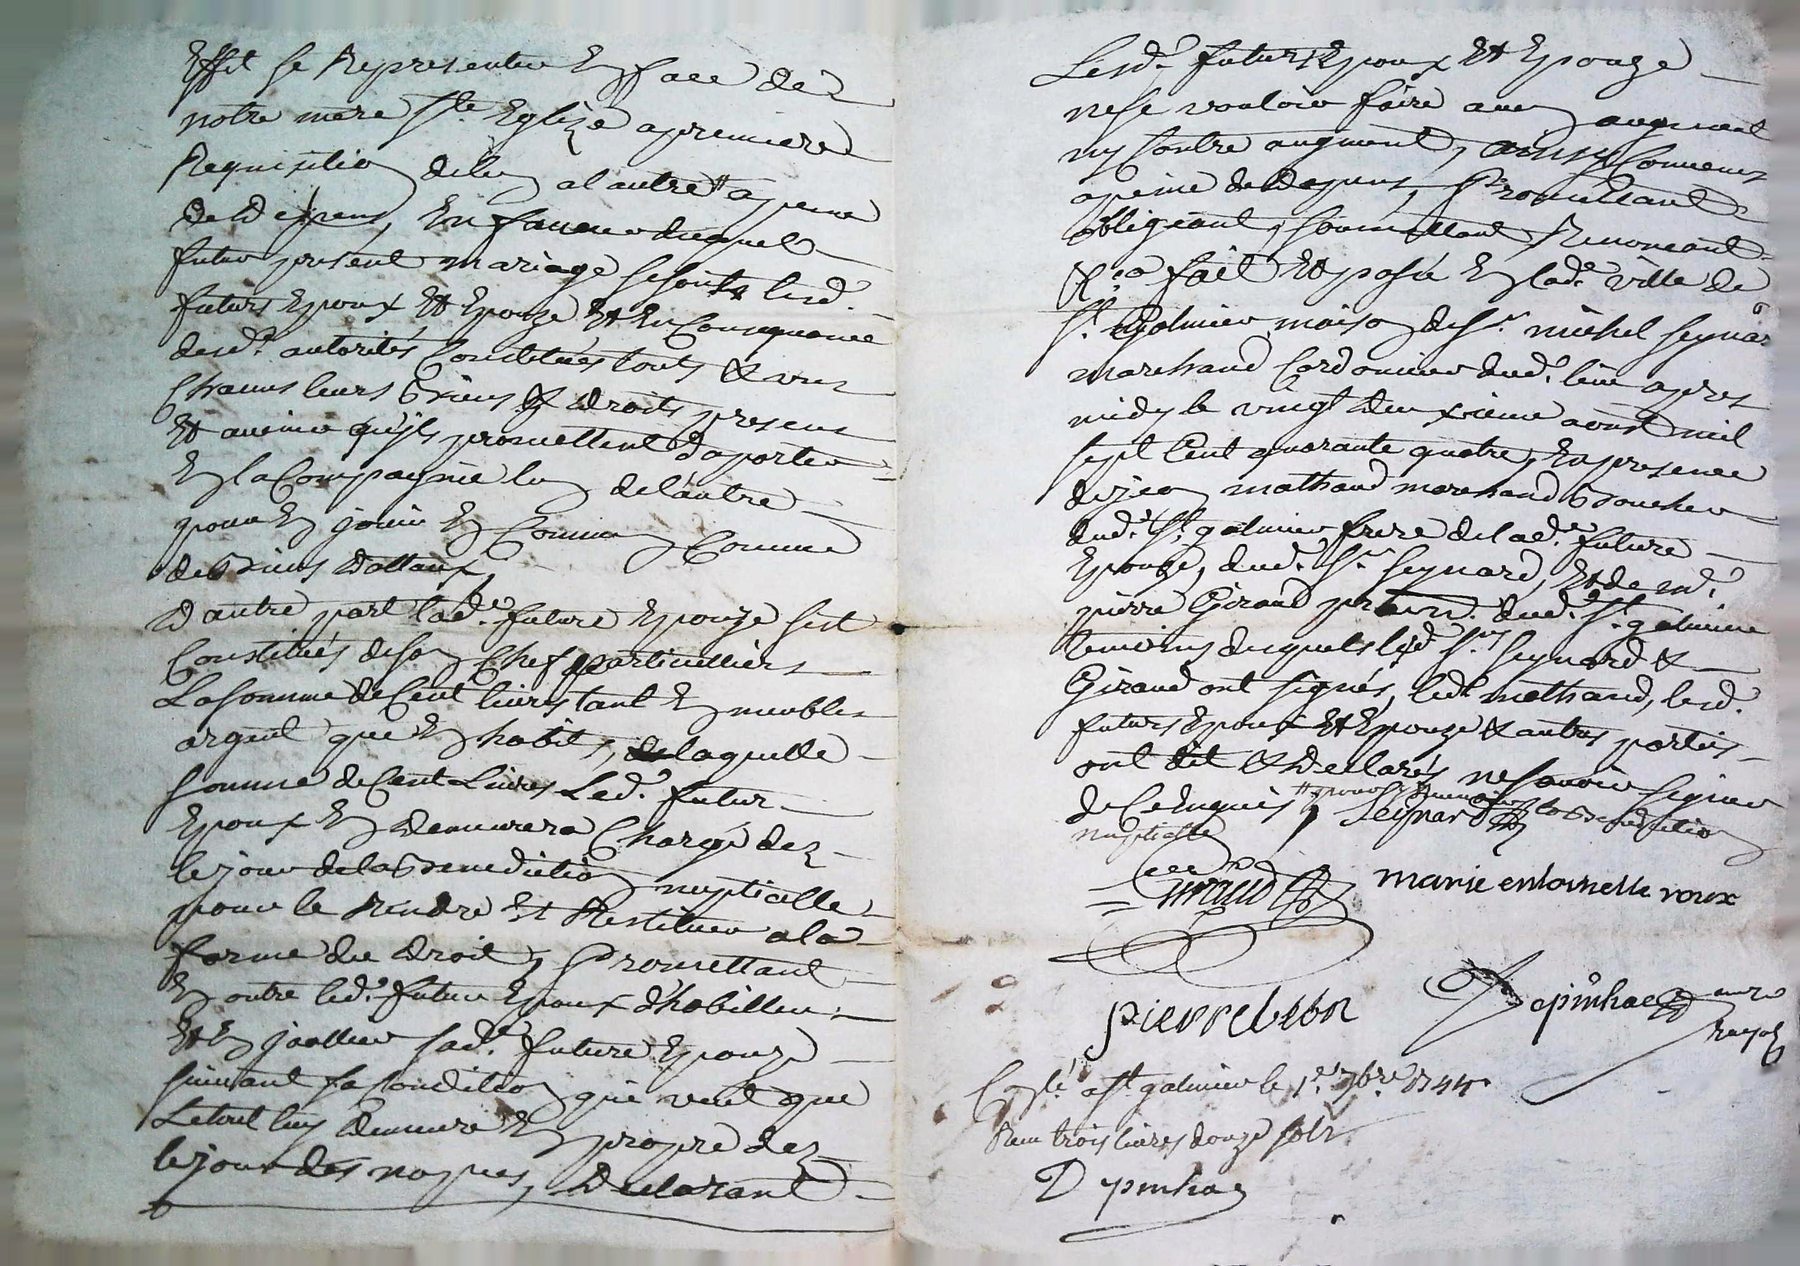 Effet se Representer En face de
notre mere Ste Eglize a premiere
Requisition de lun a lautre # a peine
de Depens, En faveur duquel
futur present mariage se sont lesd.
futurs Epoux Et Epouze Et En Consequance
desd. autorités Constitués touts & uns
Chacuns leurs biens & droits presens
Et avenir qu'ils promettent daporter
En la Compagnie lun de lautre
pour En jouir En Commun Comme
de biens Dottaux,
D'autre part lade. future Epouze sest
Constituée de son Chef particulliers
La somme de Cent livres tant En meubles
argent que En habits, de laquelle
somme de Cent Livres Led. futur
Epoux En Demeurera Chargé dez
le jour de la benediction nuptialle
pour le Rendre Et Restituer a la
forme du Droit, Promettant
En outre led. futur Epoux d'habiller
Et En joaller sade. future Epouze
suivant sa condition qui veut que
Le tout luy Demeure En propre dez
le jour des nopces, Declarant
Lesd. futurs Epoux Et Epouze
ne se vouloir faire aucun augment
ny Contre augment, ainsy Convenus
a peine de Depens, Promettant
obligeant, soumettant Renonceant
&ca fait Et passé En lade. ville de
St. Galmier maison de Sr. michel seynard
marchand Cordonnier dud. lieu apres
midy le vingt Deuxieme aoust mil
sept Cent quarante quatre, En presence
de jean mathaud marchand boucher
dud. St. galmier frere de lade. future
Epouze, dud. Sr. seynard, Et de Md.
pierre Giraud dud. St. galmier
temoins desquels lesd. Srs. seynard &
Giraud ont signés, led. mathaud, lesd.
futurs Epoux Et Epouze & autres parties
ont dit & Declarés ne savoir signer
de Ce Enquis # la benediction
nuptialle Seynard
Giraud marie entoinette roux
pierre
Depinhac
Conlé. a St galmier le 1er. 7bre. 1744.
Recu trois livres douze sols
Depinhac